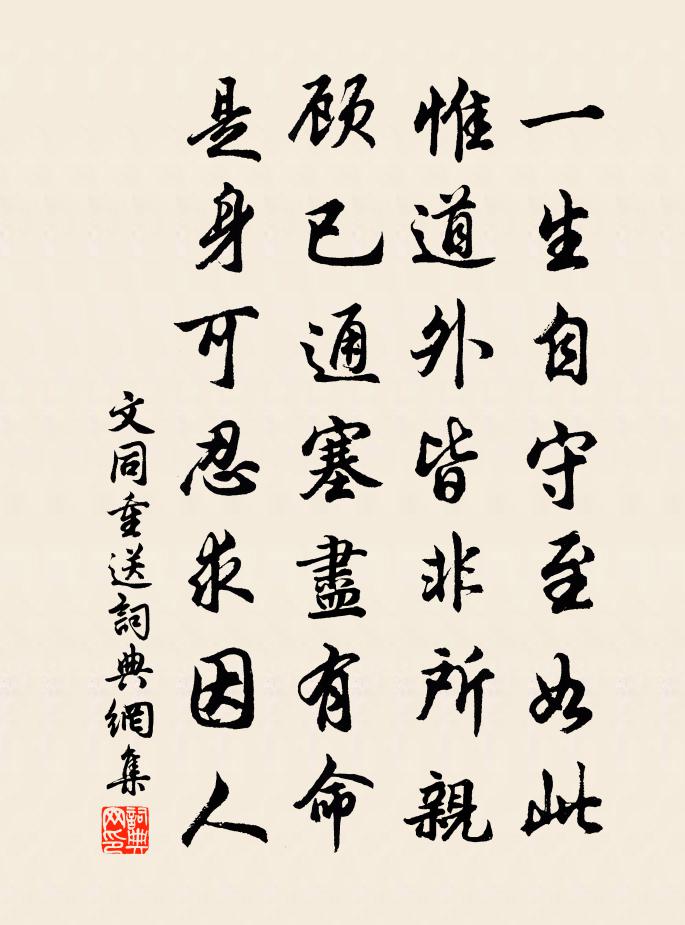 一生自守至如此
惟道外皆非所親
顧己通塞盡有命
是身可忍求因人
文同重送詞典網集
詞典網印